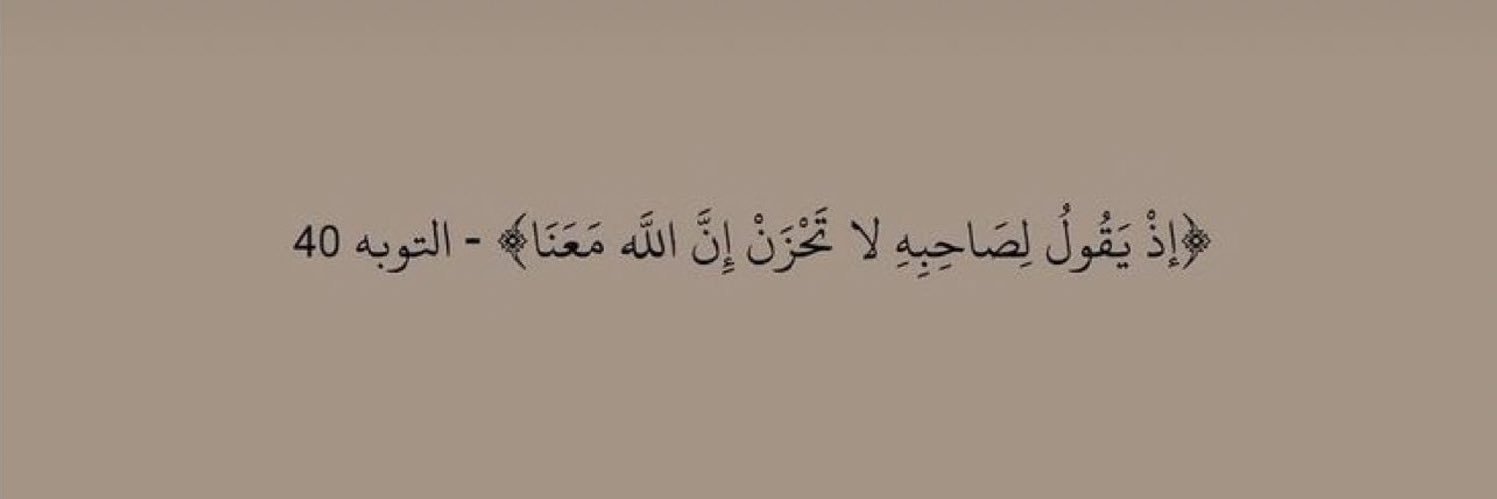 ﴿إِذْ يَقُولُ لِصَاحِبِهِ لا تَحْزَنْ إِنَّ اللَّه مَعَنَا﴾ - التوبه 40